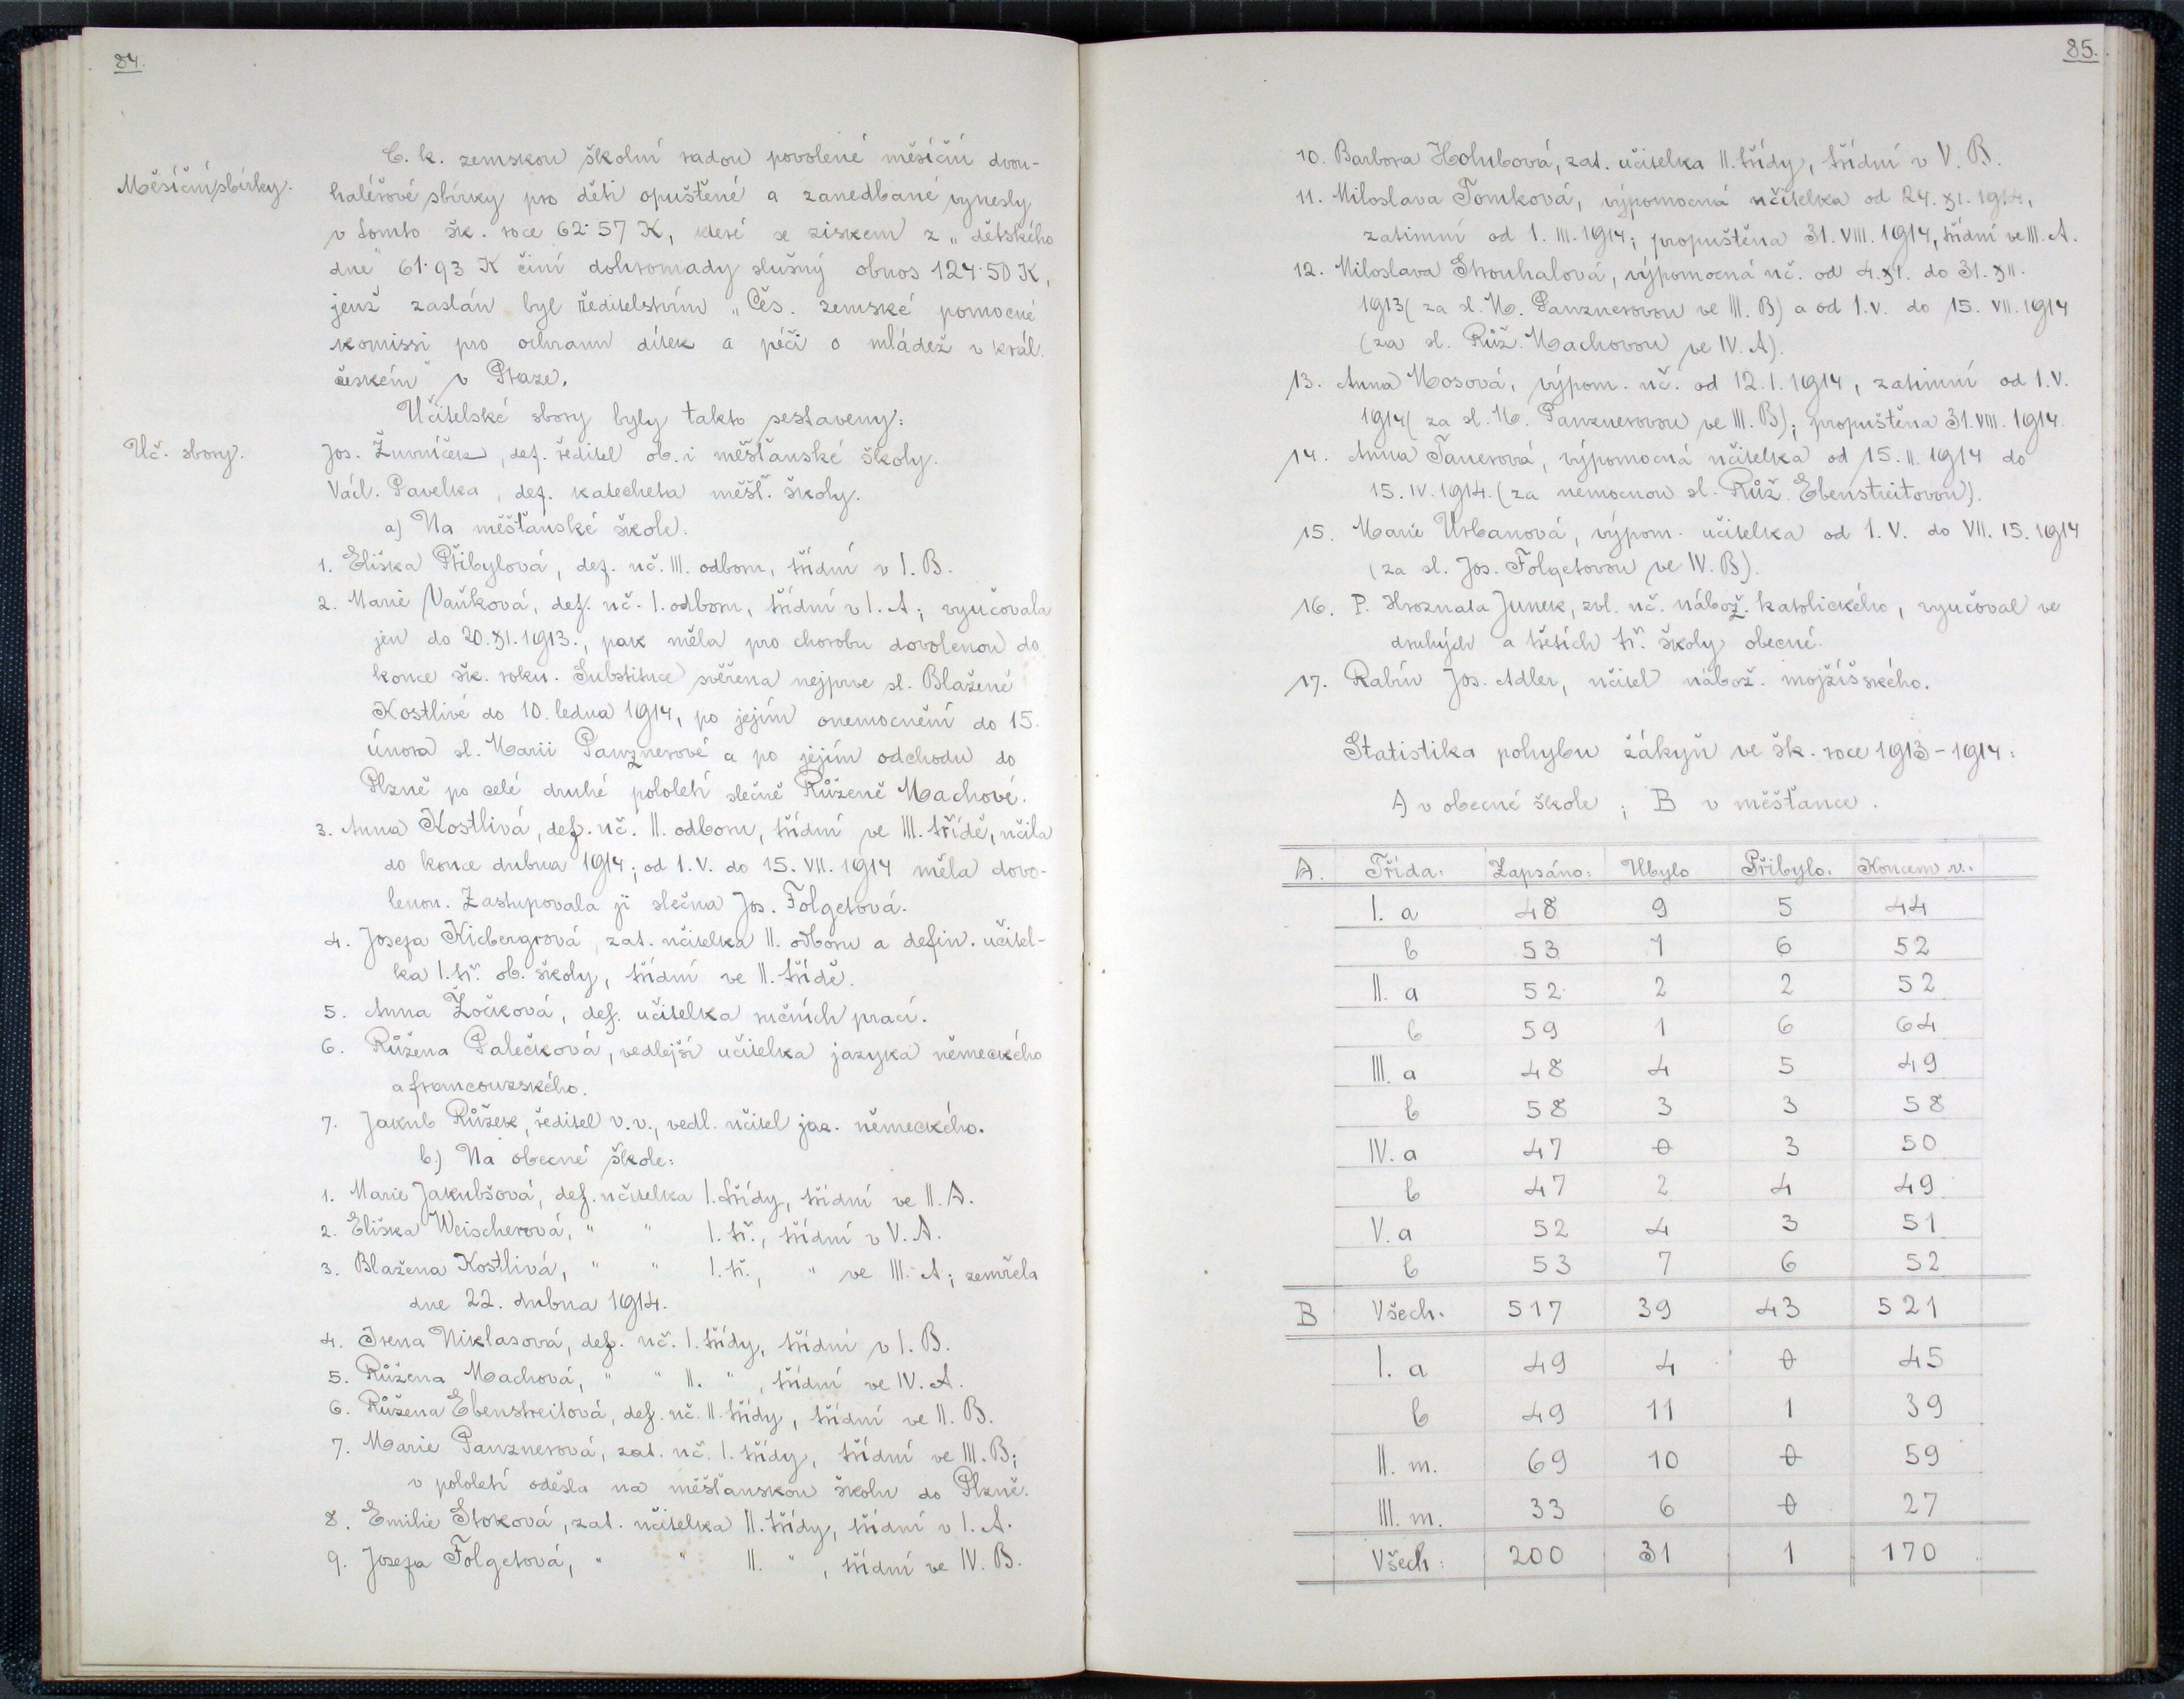 84.
C. k. zemskou školní radou povolené měsíční dvou-
Měsíční sbírky.
haléřové sbírky pro děti opuštěné a zanedbané vynesly
v tomto šk. roce 62·57 K, které se ziskem z „dětského
dne" 61·93 K činí dohromady slušný obnos 124·50 K,
jenž zaslán byl ředitelstvím „Čes. zemské pomocné
komissi pro ochranu dítek a péči o mládež v král.
českém" v Praze.
Učitelské sbory byly takto sestaveny:
Uč. sbory.
Jos. Živníček, def. ředitel ob. i měšťanské školy.
Václ. Pavelka, def. katecheta měšť. školy.
a) Na měšťanské škole:
1. Eliška Přibylová, def. uč. III. odboru, třídní v I. B.
2. Marie Vaňková, def. uč. I. odboru, třídní v I. A; vyučovala
jen do 20. XI. 1913., pak měla pro chorobu dovolenou do
konce šk. roku. Substituce svěřena nejprve sl. Blaženě
Kostlivé do 10. ledna 1914, po jejím onemocnění do 15.
února sl. Marii Panznerové a po jejím odchodu do
Plzně po celé druhé pololetí slečně Růženě Machové.
3. Anna Kostlivá, def. uč. II. odboru, třídní ve III. třídě, učila
do konce dubna 1914; od 1. V. do 15. VII. 1914 měla dovo-
lenou. Zastupovala ji slečna Jos. Folgetová.
4. Josefa Kicbergrová, zat. učitelka II. odboru a defin. učitel-
ka I. tř. ob. školy, třídní ve II. třídě.
5. Anna Žočková, def. učitelka ručních prací.
6. Růžena Palečková, vedlejší učitelka jazyka německého
a francouzského.
7. Jakub Růžek, ředitel v. v., vedl. učitel jaz. německého.
b.) Na obecné škole:
1. Marie Jakubšová, def. učitelka I. třídy, třídní ve II. A.
2. Eliška Weischerová, " " I. tř., třídní v V. A.
3. Blažena Kostlivá, " " I. tř., " ve III. A; zemřela
dne 22. dubna 1914.
4. Irena Niklasová, def. uč. I. třídy, třídní v I. B.
5. Růžena Machová, " " II. ", třídní ve IV. A.
6. Růžena Ebenstreitová, def. uč. II. třídy, třídní ve II. B.
7. Marie Panznerová, zat. uč. I. třídy, třídní ve III. B;
v pololetí odešla na měšťanskou školu do Plzně.
8. Emilie Stoková, zat. učitelka II. třídy, třídní v I. A.
9. Josefa Folgetová, " " II. ", třídní ve IV. B.
85.
10. Barbora Holubová, zat. učitelka II. třídy, třídní v V. B.
11. Miloslava Tomková, výpomocná učitelka od 24. XI. 1914,
zatimní od 1. III. 1914; propuštěna 31. VIII. 1914, třídní ve III. A.
12. Miloslava Strouhalová, výpomocná uč. od 4. XI. do 31. XII.
1913 (za sl. M. Panznerovou ve III. B) a od 1. V. do 15. VII. 1914
(za sl. Růž. Machovou ve IV. A).
13. Anna Mosová, výpom. uč. od 12. I. 1914, zatimní od 1. V.
1914 (za sl. M. Panznerovou ve III. B); propuštěna 31. VIII. 1914.
14. Anna Tanerová, výpomocná učitelka od 15. II. 1914 do
15. IV. 1914. (za nemocnou sl. Růž. Ebenstreitovou).
15. Marie Urbanová, výpom. učitelka od 1. V. do VII. 15. 1914
(za sl. Jos. Folgetovou ve IV. B).
16. P. Hroznata Junek, zvl. uč. nábož. katolického, vyučoval ve
druhých a třetích tř. školy obecné.
17. Rabín Jos. Adler, učitel nábož. mojžíšského.
Statistika pohybu žákyň ve šk. roce 1913-1914:
A) v obecné škole; B v měšťance.
A. Třída: Zapsáno: Ubylo Přibylo: Koncem r.:
I. a 48 9 5 44
b 53 7 6 52
II. a 52 2 2 52
b 59 1 6 64
III. a 48 4 5 49
b 58 3 3 58
IV. a 47 0 3 50
b 47 2 4 49
V. a 52 4 3 51
b 53 7 6 52
B Všech. 517 39 43 521
I. a 49 4 0 45
b 49 11 1 39
II. m. 69 10 0 59
III. m. 33 6 0 27
Všech: 200 31 1 170